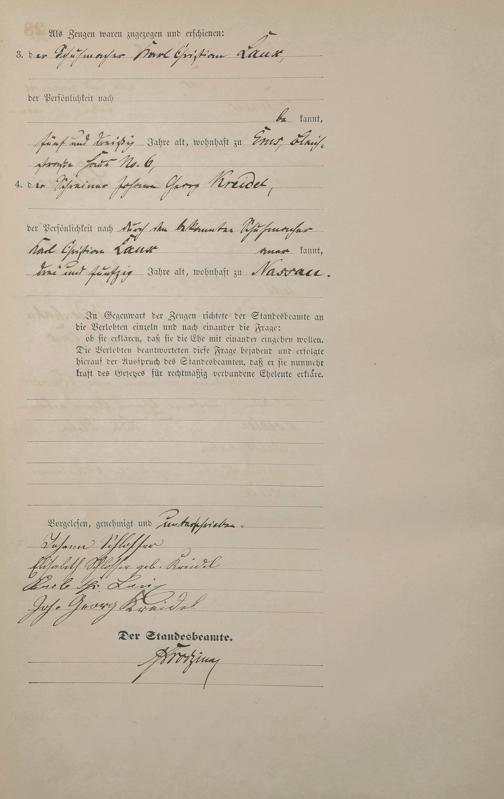 Als Zeugen waren zugezogen und erschienen:
3. der Schuhmacher Karl Christian Laux,
der Persönlichkeit nach
be kannt,
fünf und dreißig Jahre alt, wohnhaft zu Ems, Bleich-
straße Haus No. 6,
4. der Schreiner Johann Georg Kreidel,
der Persönlichkeit nach durch den bekannten Schuhmacher
Karl Christian Laux aner kannt,
drei und fünfzig Jahre alt, wohnhaft zu Nassau.
In Gegenwart der Zeugen richtete der Standesbeamte an
die Verlobten einzeln und nach einander die Frage:
ob sie erklären, daß sie die Ehe mit einander eingehen wollen.
Die Verlobten beantworteten diese Frage bejahend und erfolgte
hierauf der Ausspruch des Standesbeamten, daß er sie nunmehr
kraft des Gesetzes für rechtmäßig verbundene Eheleute erkläre.
Vorgelesen, genehmigt und unterschrieben.
Johann Schlosser
Elisabeth Schlosser geb. Kreidel
Karl
Joh. Georg Kreidel
Der Standesbeamte.